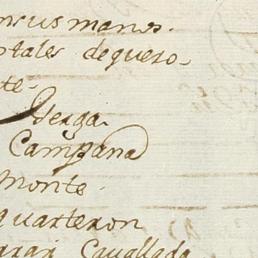 en sus manos.
otales de quero-
te.
Gerga.
Campana
Monte.
quarteron
arrar Cavallada